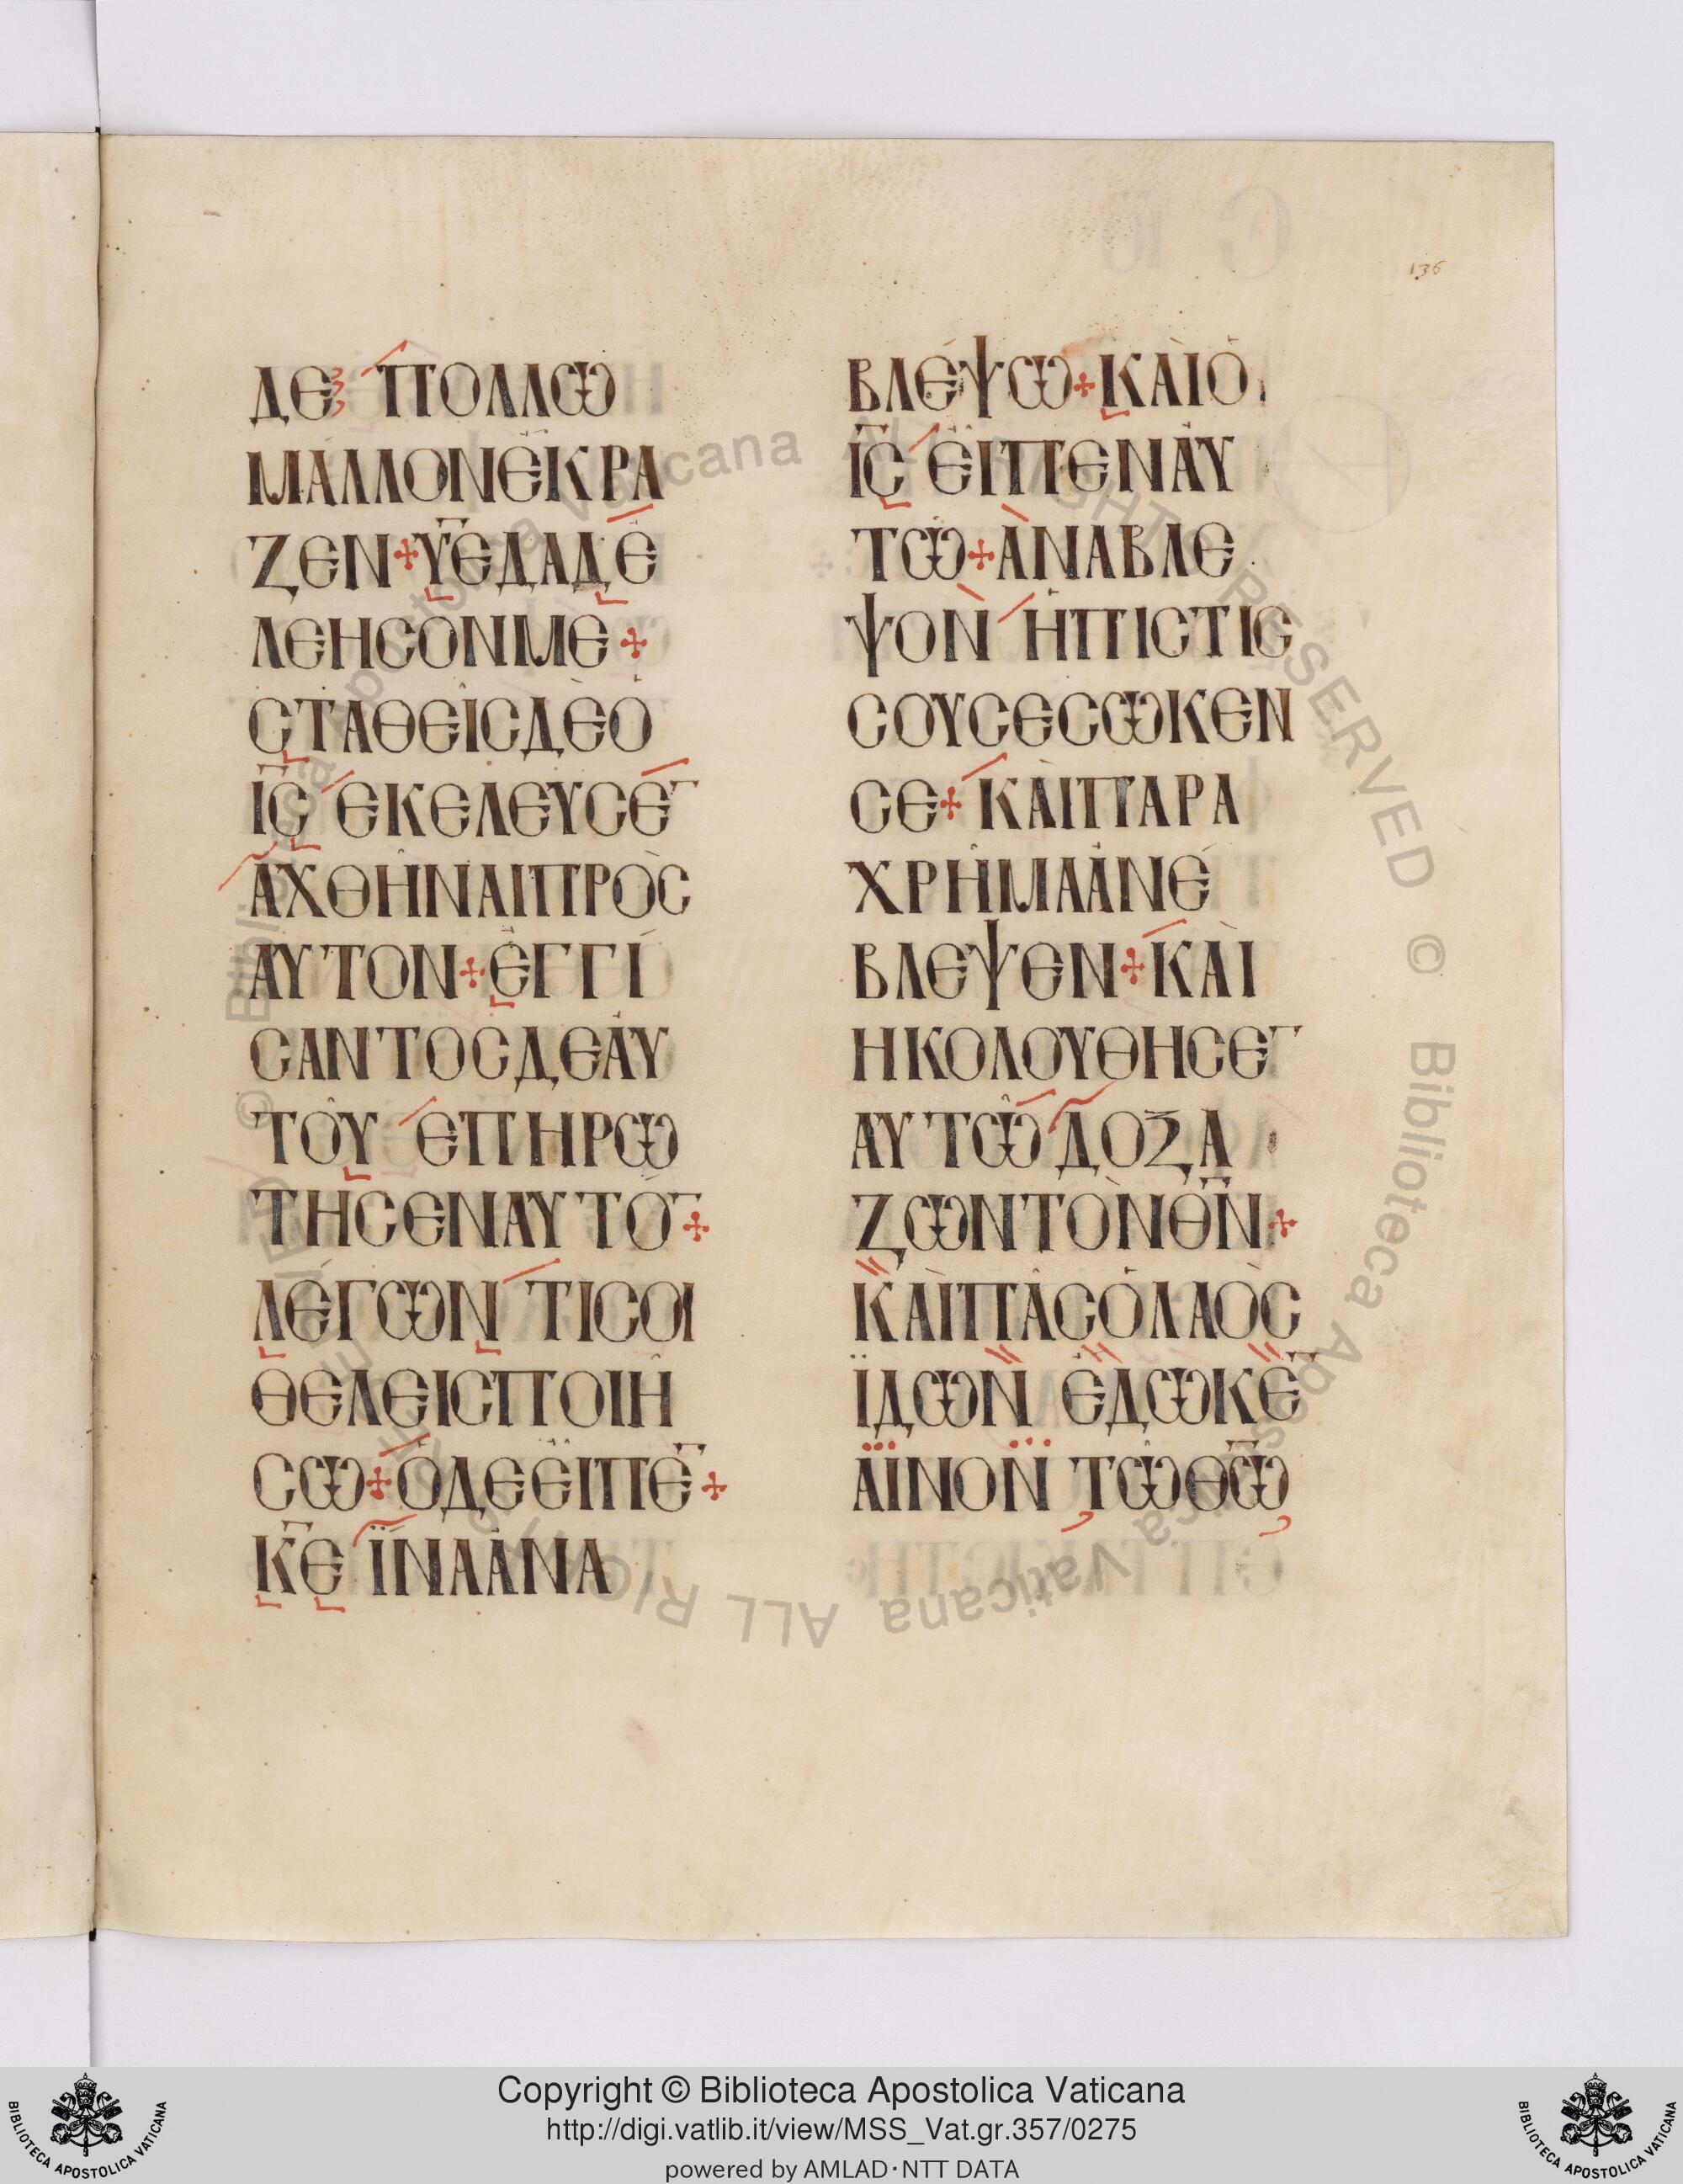 136
ΔΕ ΠΟΛΛΩ
ΜΑΛΛΟΝΕΚΡΑ
ΖΕΝ+Υ̅Ε̅ΔΑΔΕ
ΛΕΗCΟΝΜΕ+
CΤΑΘΕΙCΔΕΟ
Ι̅C̅ ΕΚΕΛΕΥCΕ̅
ΑΧΘΗΝΑΙΠΡΟC
ΑΥΤΟΝ+ΕΓΓΙ
CΑΝΤΟCΔΕΑΥ
ΤΟΥ ΕΠΗΡΩ
ΤΗCΕΝΑΥΤΟ̅+
ΛΕΓΩΝ ΤΙCΟΙ
ΘΕΛΕΙCΠΟΙΗ
CΩ+ΟΔΕΕΙΠΕ̅+
Κ̅Ε̅ ΪΝΑΑΝΑ
ΒΛΕΨΩ+ΚΑΙΟ
Ι̅C̅ ΕΙΠΕΝΑΥ
ΤΩ+ΑΝΑΒΛΕ
ΨΟΝ ΗΠΙCΤΙC
CΟΥCΕCΩΚΕΝ
CΕ+ΚΑΙΠΑΡΑ
ΧΡΗΜΑΑΝΕ
ΒΛΕΨΕΝ+ΚΑΙ
ΗΚΟΛΟΥΘΗCΕ̅
ΑΥΤΩ ΔΟΞΑ
ΖΩΝΤΟΝΘ̅Ν̅+
ΚΑΙΠΑCΟΛΑΟC
ΪΔΩΝ ΕΔΩΚΕ̅
ΑΙΝΟΝ ΤΩΘ̅Ω̅
© Biblioteca Apostolica Vaticana ALL RIGHTS RESERVED © Biblioteca Apostolica Vaticana ALL RIGHTS RESERVED
Copyright © Biblioteca Apostolica Vaticana
http://digi.vatlib.it/view/MSS_Vat.gr.357/0275
powered by AMLAD·NTT DATA
BIBLIOTECA APOSTOLICA VATICANA
BIBLIOTECA APOSTOLICA VATICANA